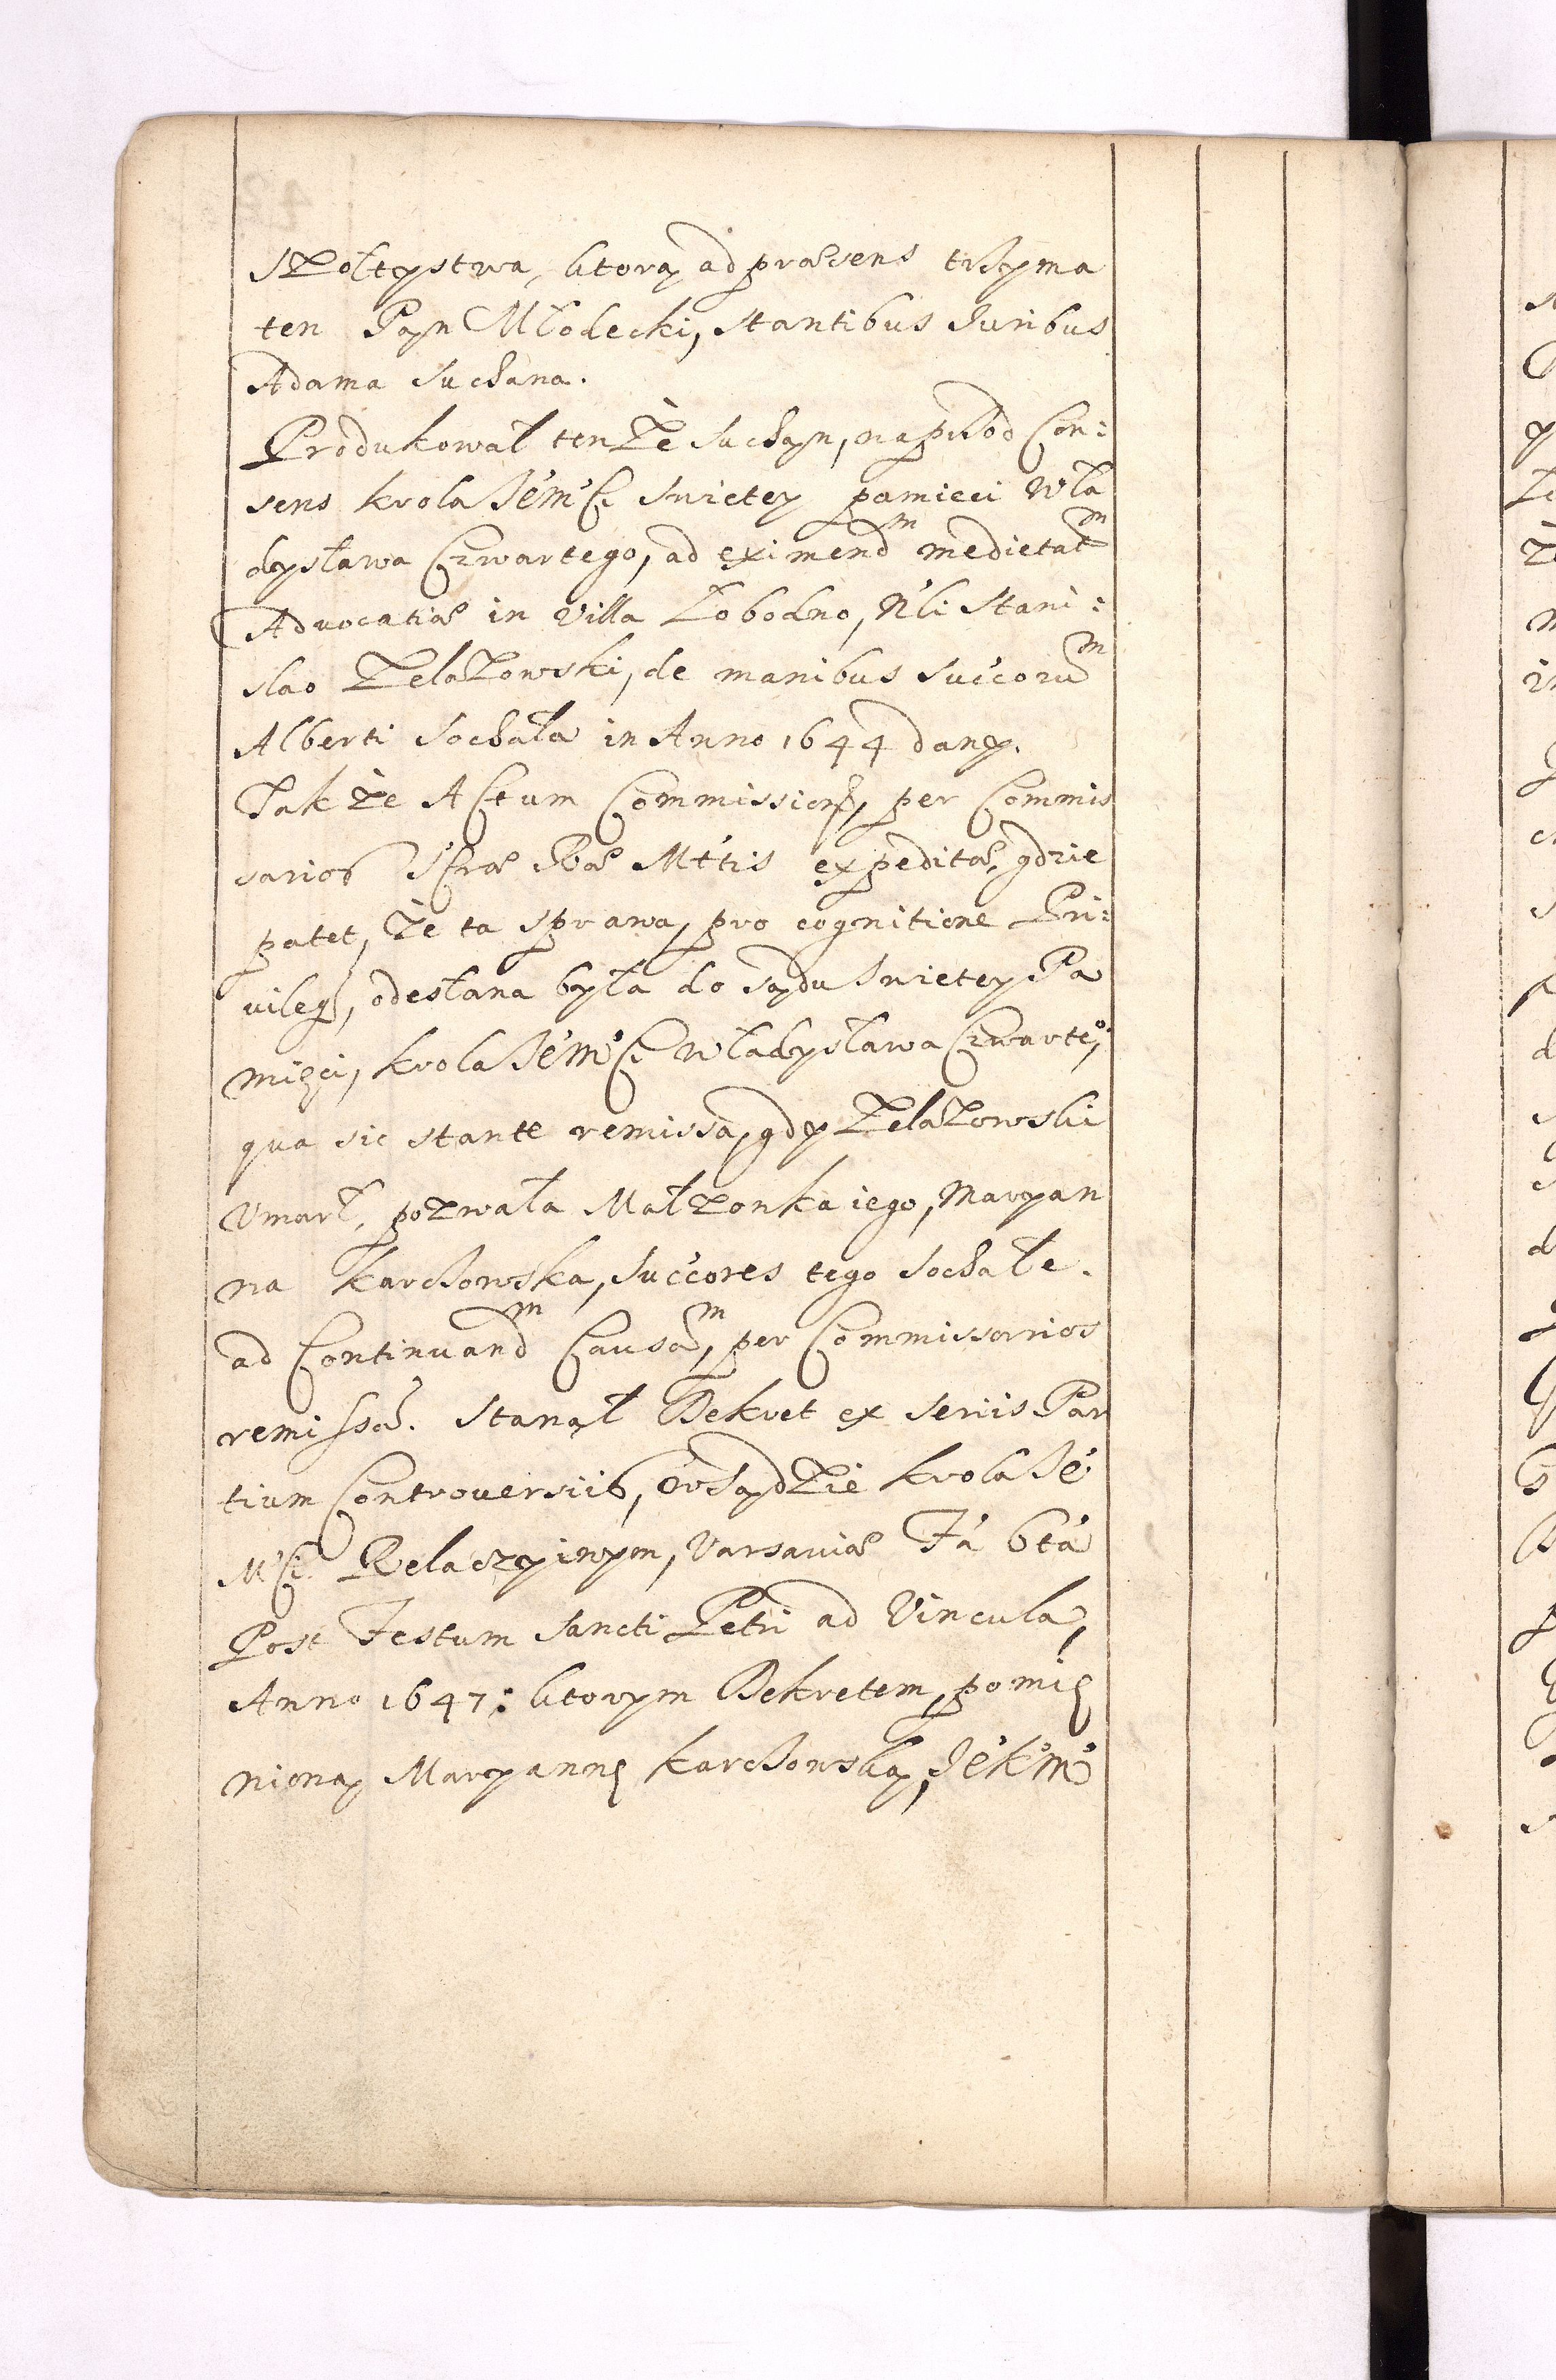 Szołtystwa, ktorą ad præsens trzyma
ten Pan Młodecki, stantibus Juribus
Adama Suchana.
Produkował tenże Suchan, naprzod Con:
sens krola Jé̇m̊ci swietey pamięci Wła
dysława Czwartego, ad eximendᵐ medietatᵐ
Advocatiæ in Villa Łobodno, Nli Stani:
slao Żelazowski, de manibus Succorūᵐ
Alberti Sochała in Anno 1644 dany.
Także Actum Commissionꝭ, per Commis
sarios Scræ Rgæ Mttis expeditæ, gdzie
patet, że ta sprawa, pro cognitione Pri:
vilegꝭ, odesłana była do sądu Swietey Pa
mięci, krola Jé̇m̊ci Władysława Czwarte°,
qua sic stante remissa, gdy Żelazowski
Vmarł, pozwała Małzonka iego, Maryan
na Karchowska, Succores tego Sochałe.
ad Continuandᵐ Causāᵐ, per Commissarios
remissā. Stanął Dekret ex seriis Par
tium Controversiis, w sądzie krola Jé
Mci Relaczyinym, Varsaviæ Fa 6ta
Post Festum Sancti Petri ad Vincula,
Anno 1647: ktorym Dekretem, pomię
nioną Maryannę Karchowską, Jé̇k̊m̊